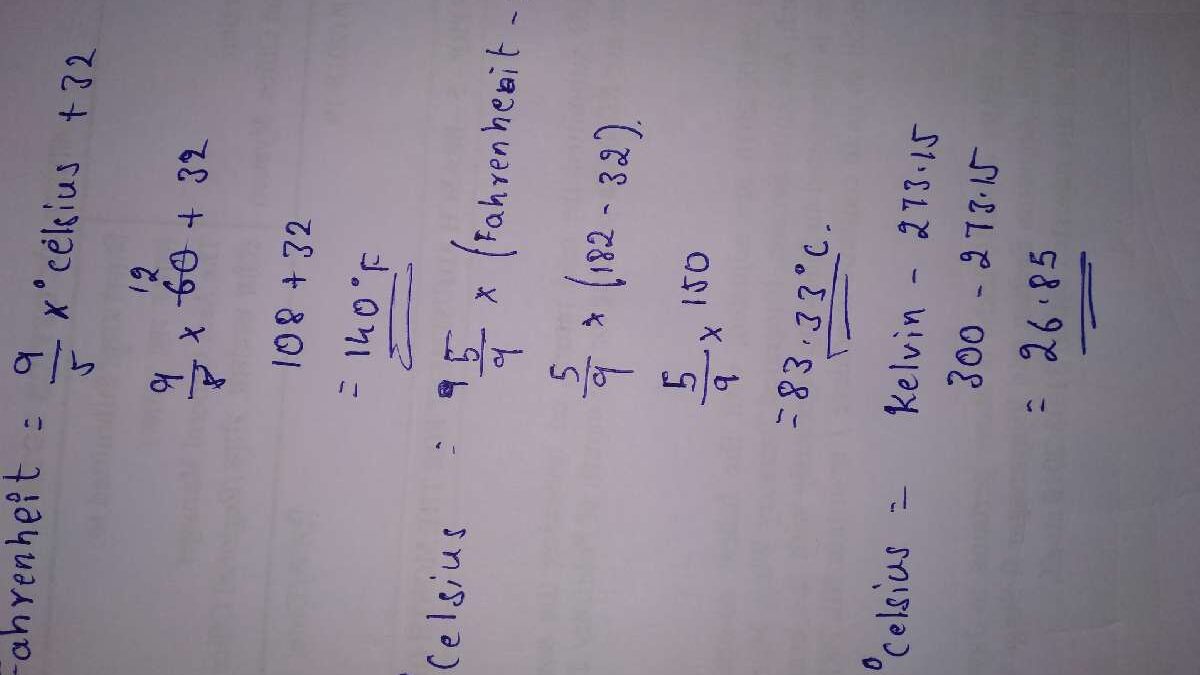 Fahrenheit = 9/5 x °celsius + 32
9/5 x 60 + 32
12
108 + 32
= 140°F
Celsius : 5/9 x (Fahrenheit -
5/9 x (182 - 32).
5/9 x 150
= 83.33°C.
°Celsius = Kelvin - 273.15
300 - 273.15
= 26.85